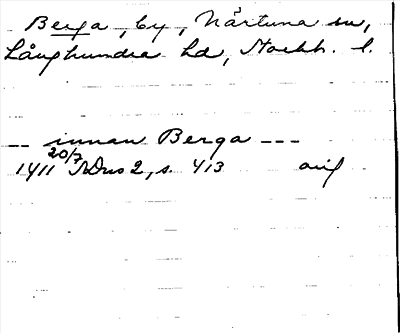 Berga, by, Närtuna sn,
Långhundra hd, Stockh. l.
-- innan Berga ---
1411 20/7 SDns 2, s. 413 avs